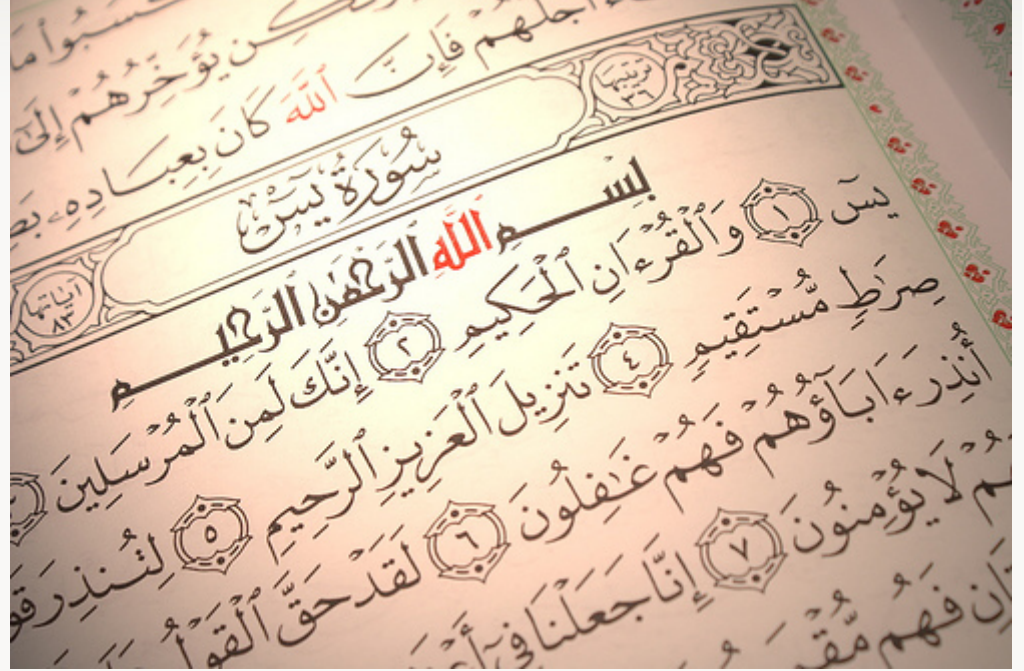 كَسَبُوا۟ مَا
يُؤَخِّرُهُمْ إِلَىٰٓ
أَجَلُهُمْ فَإِنَّ ٱللَّهَ كَانَ بِعِبَادِهِۦ
ترتيبها ٣٦ سُورَةُ يسٓ آياتها ٨٣
بِسْمِ ٱللَّهِ ٱلرَّحْمَٰنِ ٱلرَّحِيمِ
يسٓ ١ وَٱلْقُرْءَانِ ٱلْحَكِيمِ ٢ إِنَّكَ لَمِنَ ٱلْمُرْسَلِينَ ٣
صِرَٰطٍ مُّسْتَقِيمٍ ٤ تَنزِيلَ ٱلْعَزِيزِ ٱلرَّحِيمِ ٥ لِتُنذِرَ
أُنذِرَ ءَابَآؤُهُمْ فَهُمْ غَٰفِلُونَ ٦ لَقَدْ حَقَّ ٱلْقَوْلُ
لَا يُؤْمِنُونَ ٧ إِنَّا جَعَلْنَا فِىٓ
فَهُم